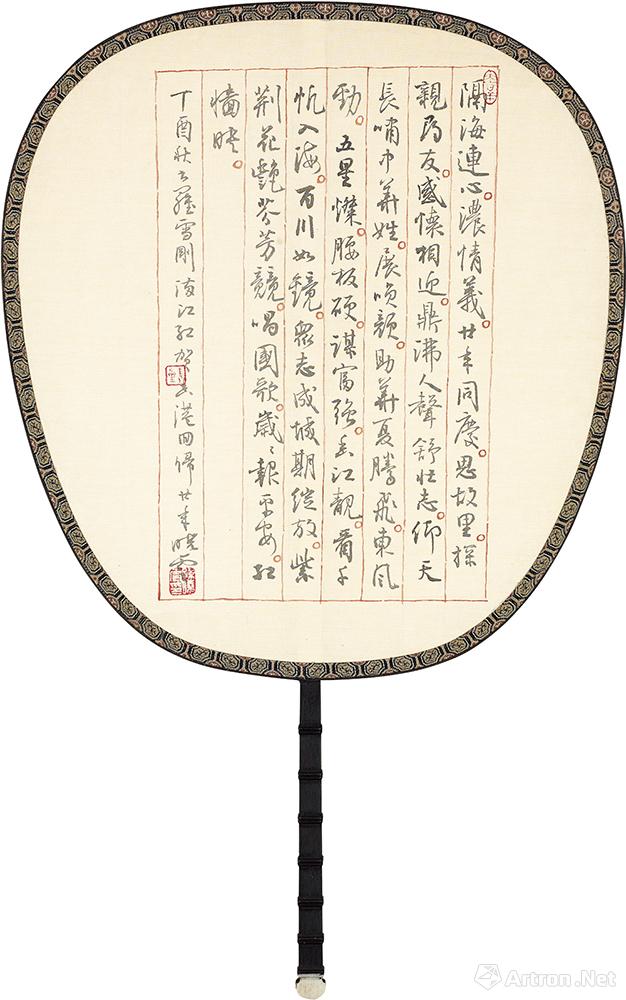 隔海連心濃情義廿年同慶思故里探
親局友感懷相近鼎沸人聲舒壯志仰天
長嘯中華姓展喚顏助華夏騰飛東風
勁五星燦腰板硬謀富強香江靚看千
帆入海百川如鏡衆志成城期綻放紫
荊花艷芬芳競唱國歌歲歲報平安紅
墻映
丁酉秋書羅雪剛滿江紅賀香港回歸廿年曉
Artron.Net